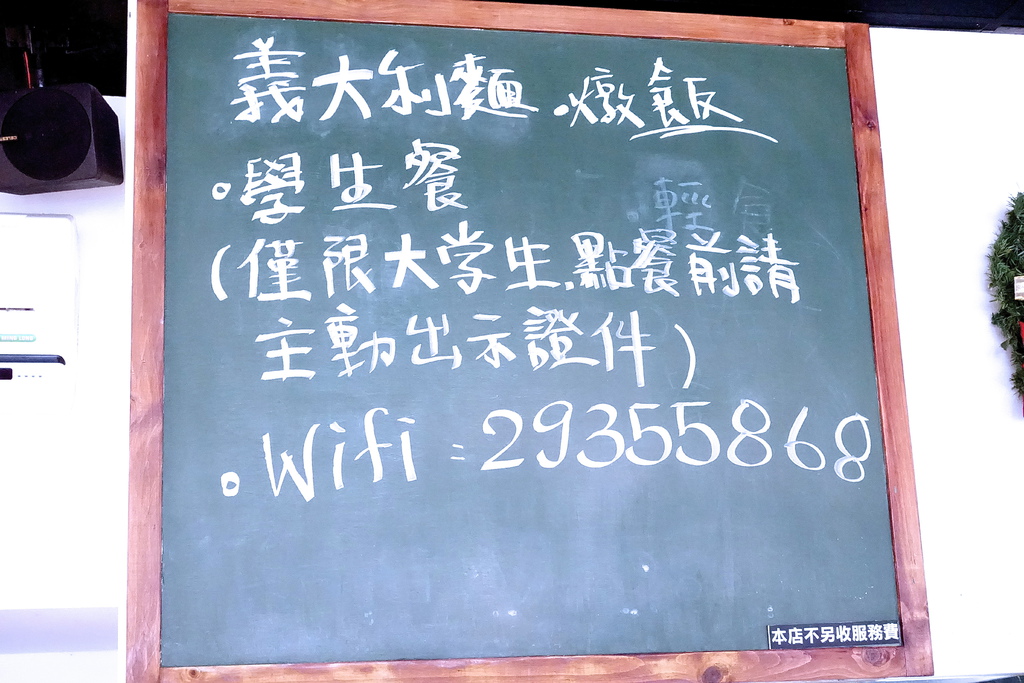 義大利麵.燉飯
。學生餐
輕食
(僅限大学生.點餐前請
主動出示證件)
。Wifi：29355868
本店不另收服務費